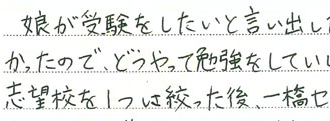 娘が受験をしたいと言い出し
かったので、どうやって勉強をしてい
志望校を1つは絞った後、一橋セ